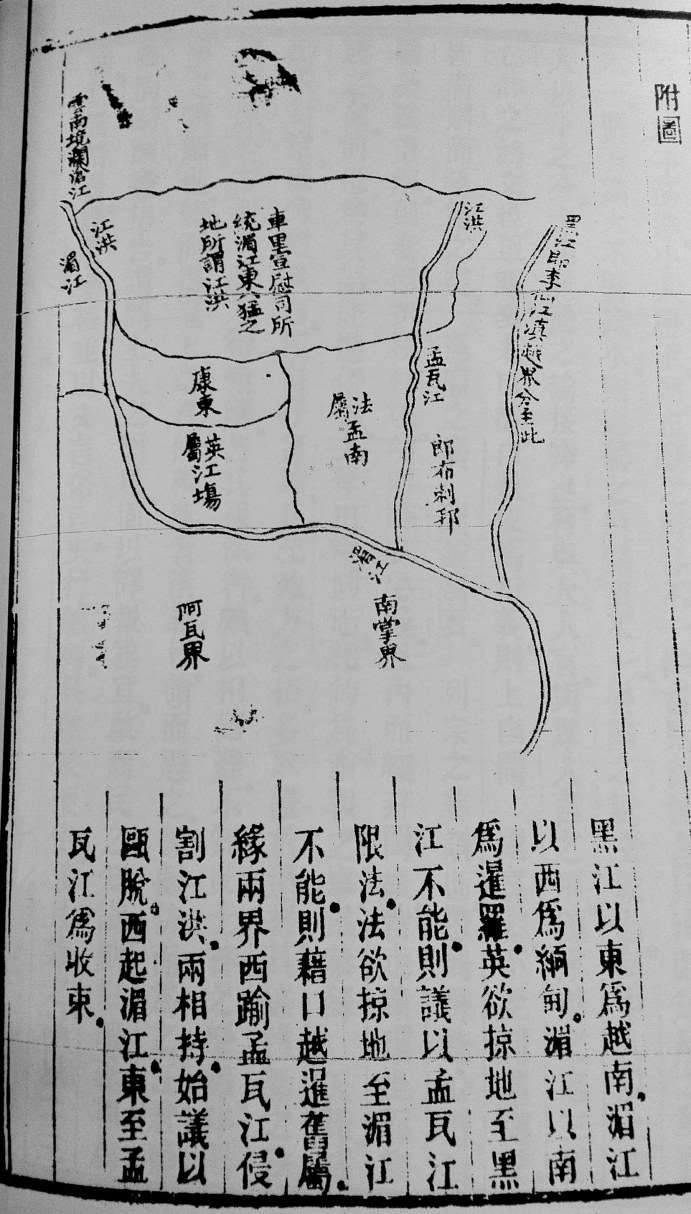 附圖
黑江即李仙江滇越界分至此
江洪
孟瓦江
郎布剌邦
法孟南
屬
車里宣慰司所
統湄江東六猛之
地所謂江洪
康東
英江場
屬
雲南境瀾滄江
江洪
湄江
湄江
南掌界
阿瓦界
黑江以東爲越南湄江
以西爲緬甸湄江以南
爲暹羅英欲掠地至黑
江不能則議以孟瓦江
限法法欲掠地至湄江
不能則藉口越暹舊屬
緣兩界西踰孟瓦江侵
割江洪兩相持始議以
甌脫西起湄江東至孟
瓦江爲收束